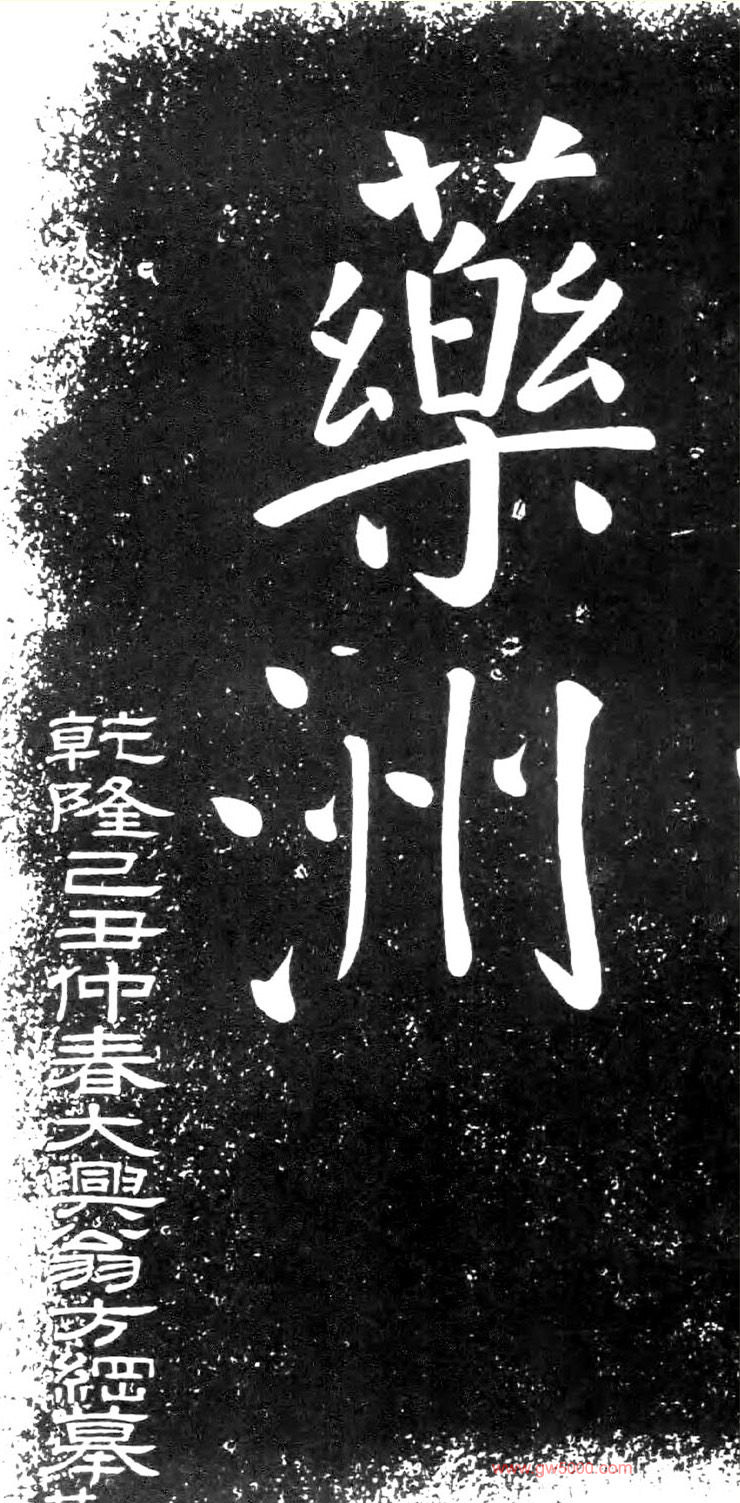 藥洲
乾隆己丑仲春大興翁方綱摹
www.gw5000.com